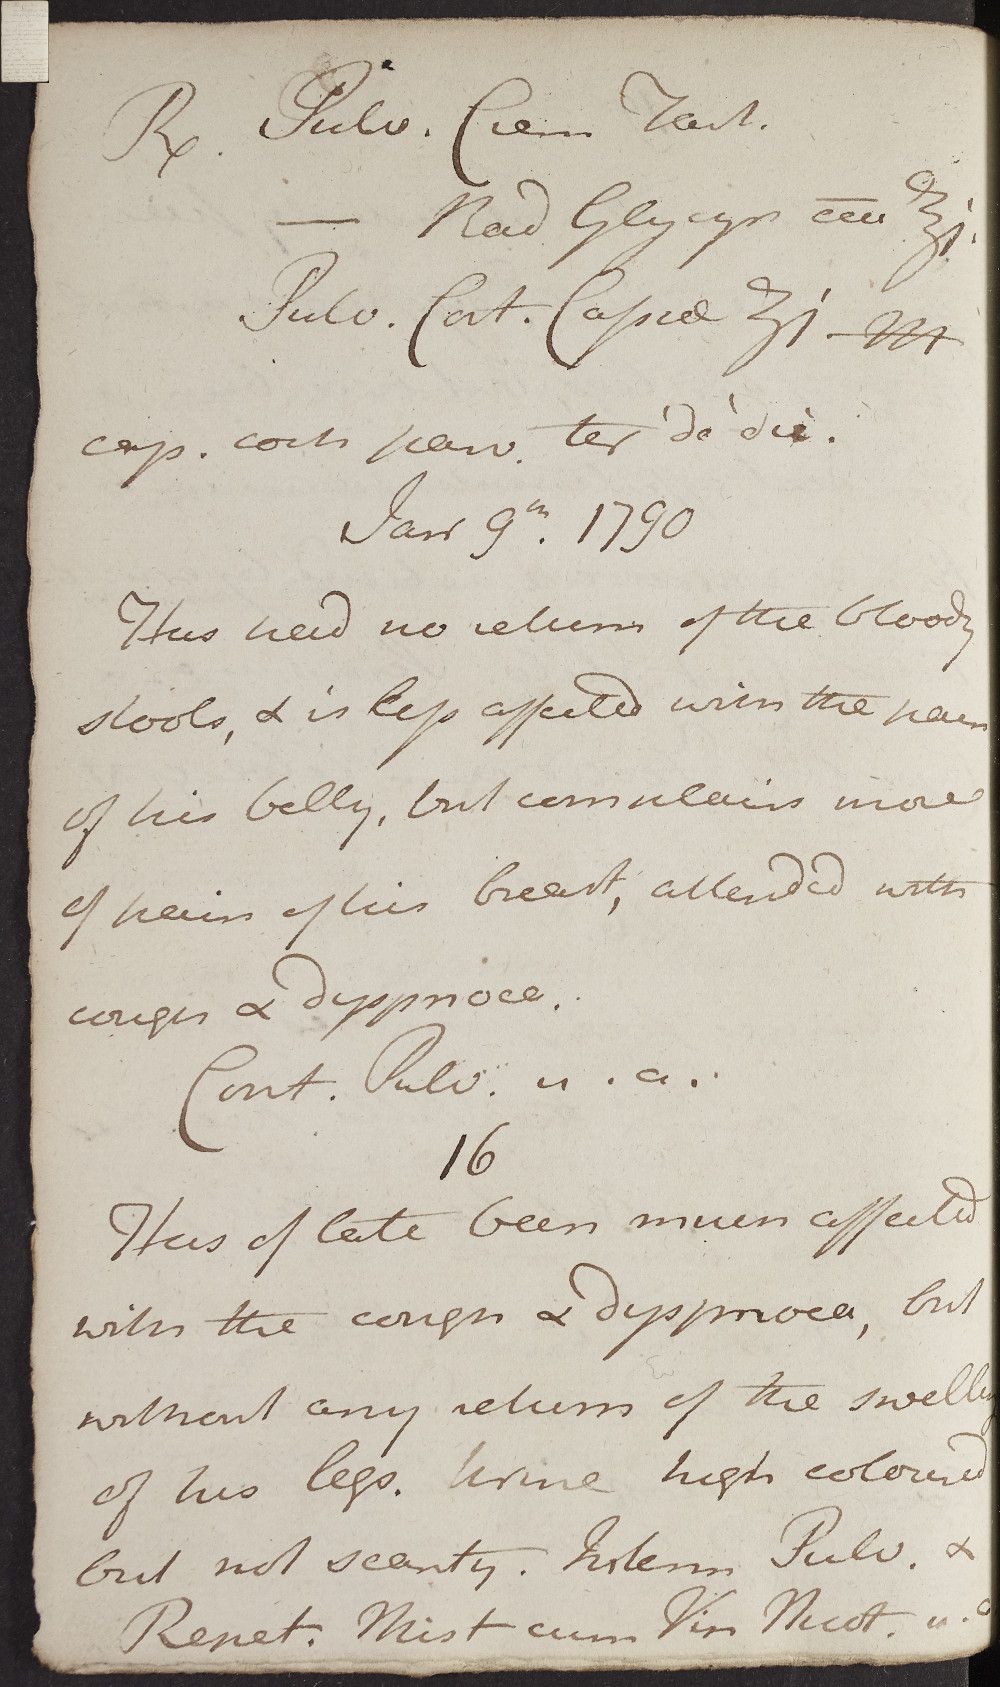 Rx. Pulv. Crem Tart.
— Rad Glycyrr āāā ʒj.
Pulv. Cort. Cassiæ ʒj — M
cap. coch parv. ter de die.
Janr 9th. 1790
Has had no return of the bloody
stools, & is less affected with the pain
of his belly, but complains more
of pain of his breast, attended with
cough & dyspnoea.
Cont. Pulv. u. a.
16
Has of late been much affected
with the cough & dyspnoea, but
without any return of the swelling
of his legs. Urine high coloured
but not scanty. Interm Pulv. &
Repet. Mist cum Vin Nicot. u. a